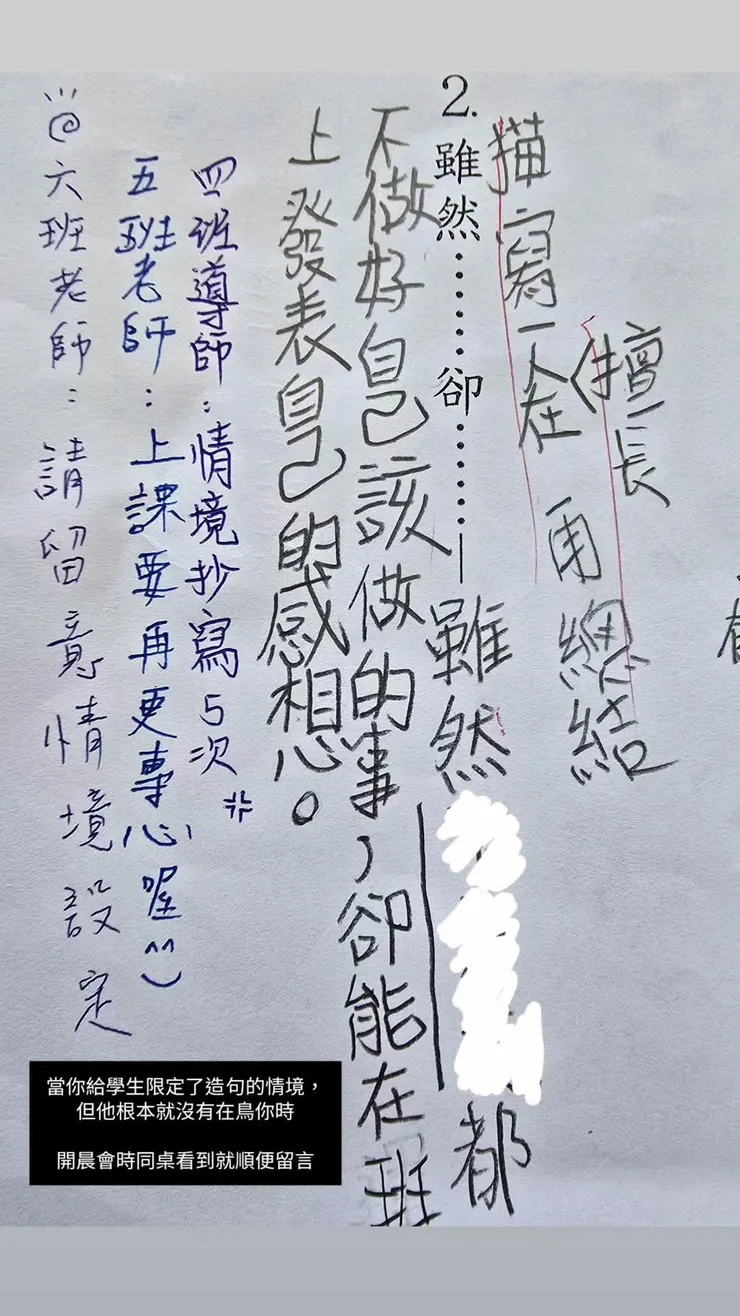 擅長
描寫一人在
再總結
2. 雖然………卻………—雖然 都
不做好自己該做的事，卻能在班
上發表自己的感想。
四班導師：情境抄寫5次
五班老師：上課要再更專心喔^^)
六班老師：請留意情境設定
當你給學生限定了造句的情境，
但他根本就沒有在鳥你時
開晨會時同桌看到就順便留言